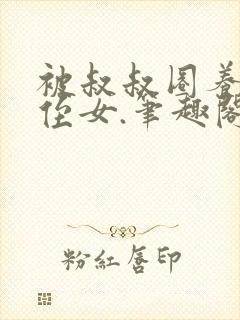 被叔叔圈养
侄女.笔趣阁
粉红唇印